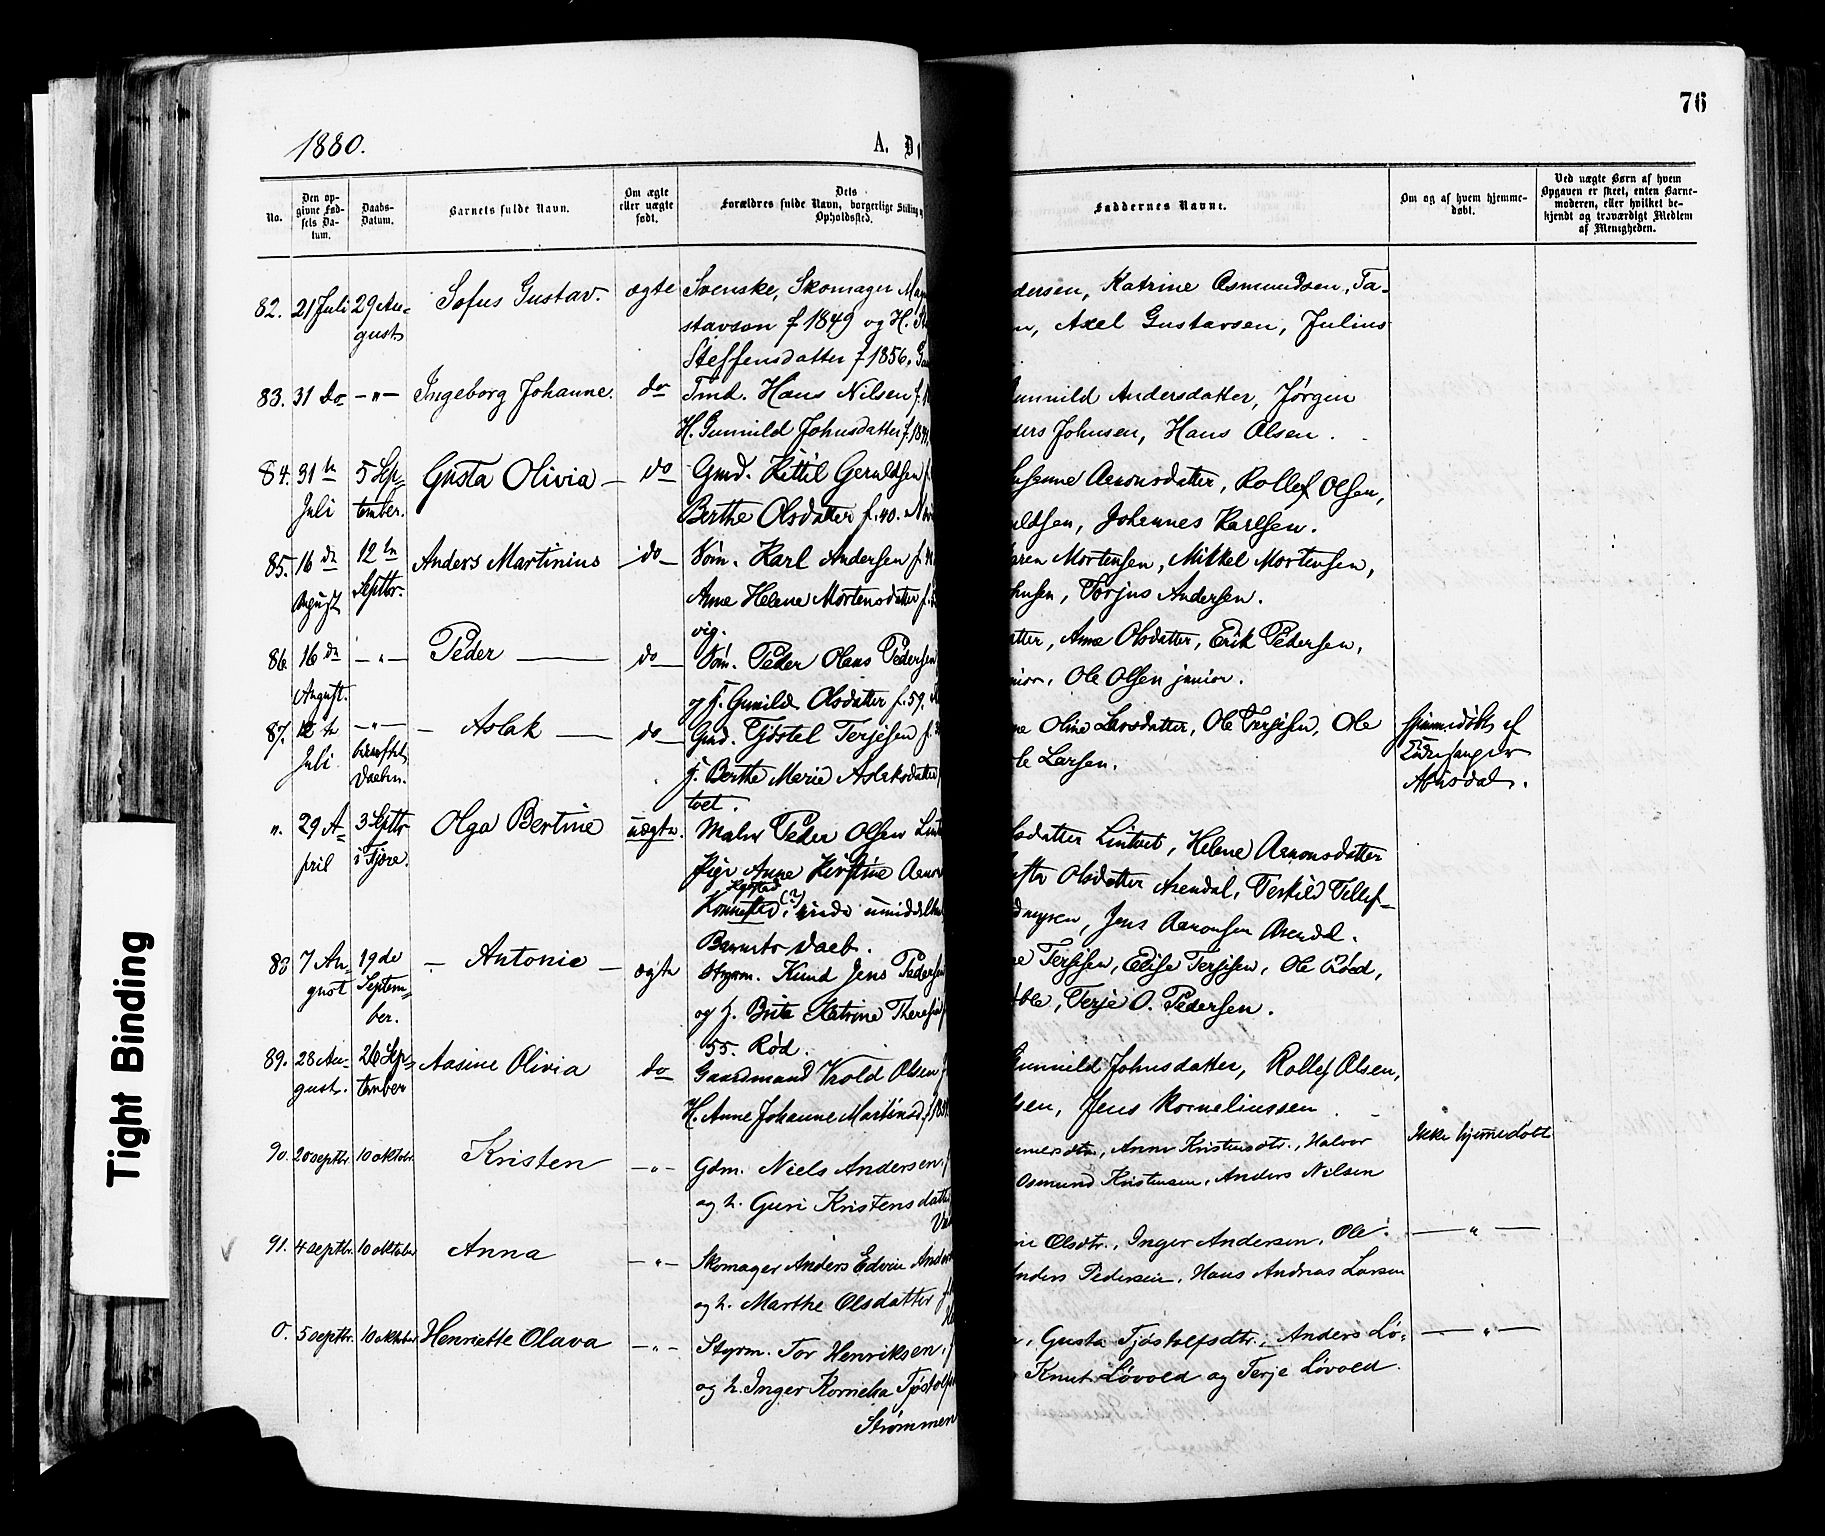 76
1880.
A. D
No.
Den op-
givne Fød-
sels Da-
tum.
Daabs-
Datum.
Barnets fulde Navn.
Om ægte
eller uægte
født.
Dets
Forældres fulde Navn, borgerlige Stilling
Opholdssted.
Faddernes Navne.
Om og af hvem hjemme-
døbt.
Ved uægte Børn af hvem
Opgaven er skeet, enten Barne-
moderen, eller hvilket be-
kjendt og troværdigt Medlem
af Menigheden.
82. 21 Juli 29 Au- Sofus Gustav. ægte Svenske, Skomager
gust
stavson f 1849 og H.
Steffensdatter f 1856.
dersen, Katrine Osmundsen, Ta-
n, Axel Gustavsen, Julius
83. 31 do -"- Ingeborg Johanne. do Tmd. Hans Nilsen f.
H. Gunnild Johnsdatter f.
unnild Andersdatter, Jørgen
ders Johnsen, Hans Olsen.
84. 31te 5 Sep- Gusta Olivia - do Gmd. Kittil Geruldsen f.
Juli tember. Berthe Olsdatter f. 40.
usanne Aanonsdatter, Rollef Olsen,
uldsen, Johannes Karlsen.
85. 16de 12te Anders Martinius do Søm. Karl Andersen f.
August Septbr. Anne Helene Mortensdatter f.
vig.
aren Mortensen, Mikkel Mortensen,
hnsen, Torjus Andersen.
86 16de -"- Peder do Søm. Peder Olaus Pedersen
August. og H. Gunild Olsdatter f. 59.
atter, Anne Olsdatter, Erik Pedersen,
nior, Ole Olsen junior.
87. -"- Aslak do Gmd. Tjøstel Terjesen f.
Juli
Daaben. H. Berthe Marie Aslaksdatter
tvet.
ne Oline Larsdatter, Ole Terjesen, Ole
le Larsen.
Hjemmedøbt af
Kirkesanger
Aausdal.
n. 29 A- 3 Septbr Olga Bertine uægte. Maler Peder Olsen
pril i Fjære. Pige Anne Kirstine
(?)
Barnets Daab.
sdatter Lintveit, Helene Aanonsdatter
Olsdatter Arendal, Terkild Tellef-
dmyren, Jens Aanonsen Arendal.
88 7 Au- 19de - Antonie - ægte Styrm. Knud Jens Pedersen
gust Septem-
ber. og H. Brite Katrine
55. Rød.
e Terjesen, Elise Terjesen, Ole Røed,
ble, Terje O. Pedersen.
89. 28 Au- 26 Sep- Aasine Olivia do Gaardmand Trold Olsen
gust. tember H. Anne Johanne Martinsd. f.
Gunnild Johnsdatter, Rollef Olsen,
lsen, Jens Korneliussen
90. 20 septbr. 10 oktobr. Kristen -"- Gdm. Niels Andersen.
og h. Guri Kristensdatter
Anne Kristensdtr., Halvor
Osmund Kristensen, Anders Nilsen
Ikke hjemmedøbt
91. 4 septbr. 10 oktobr Anna -"- Skomager Anders Edvin
og h. Marthe Olsdatter
ne Olsdtr., Inger Andersen, Ole
Anders Pedersen, Hans Andreas Larsen
-"-
0. 5 septbr. 10 oktobr Henriette Olava -"- Styrm. Tor Henriksen.
og h. Inger Kornelia
Strømmen
Gusta Tjøstolfsdtr., Anders Lø-
Knut Løvold og Terje Løvold.
-"-
Tight Binding